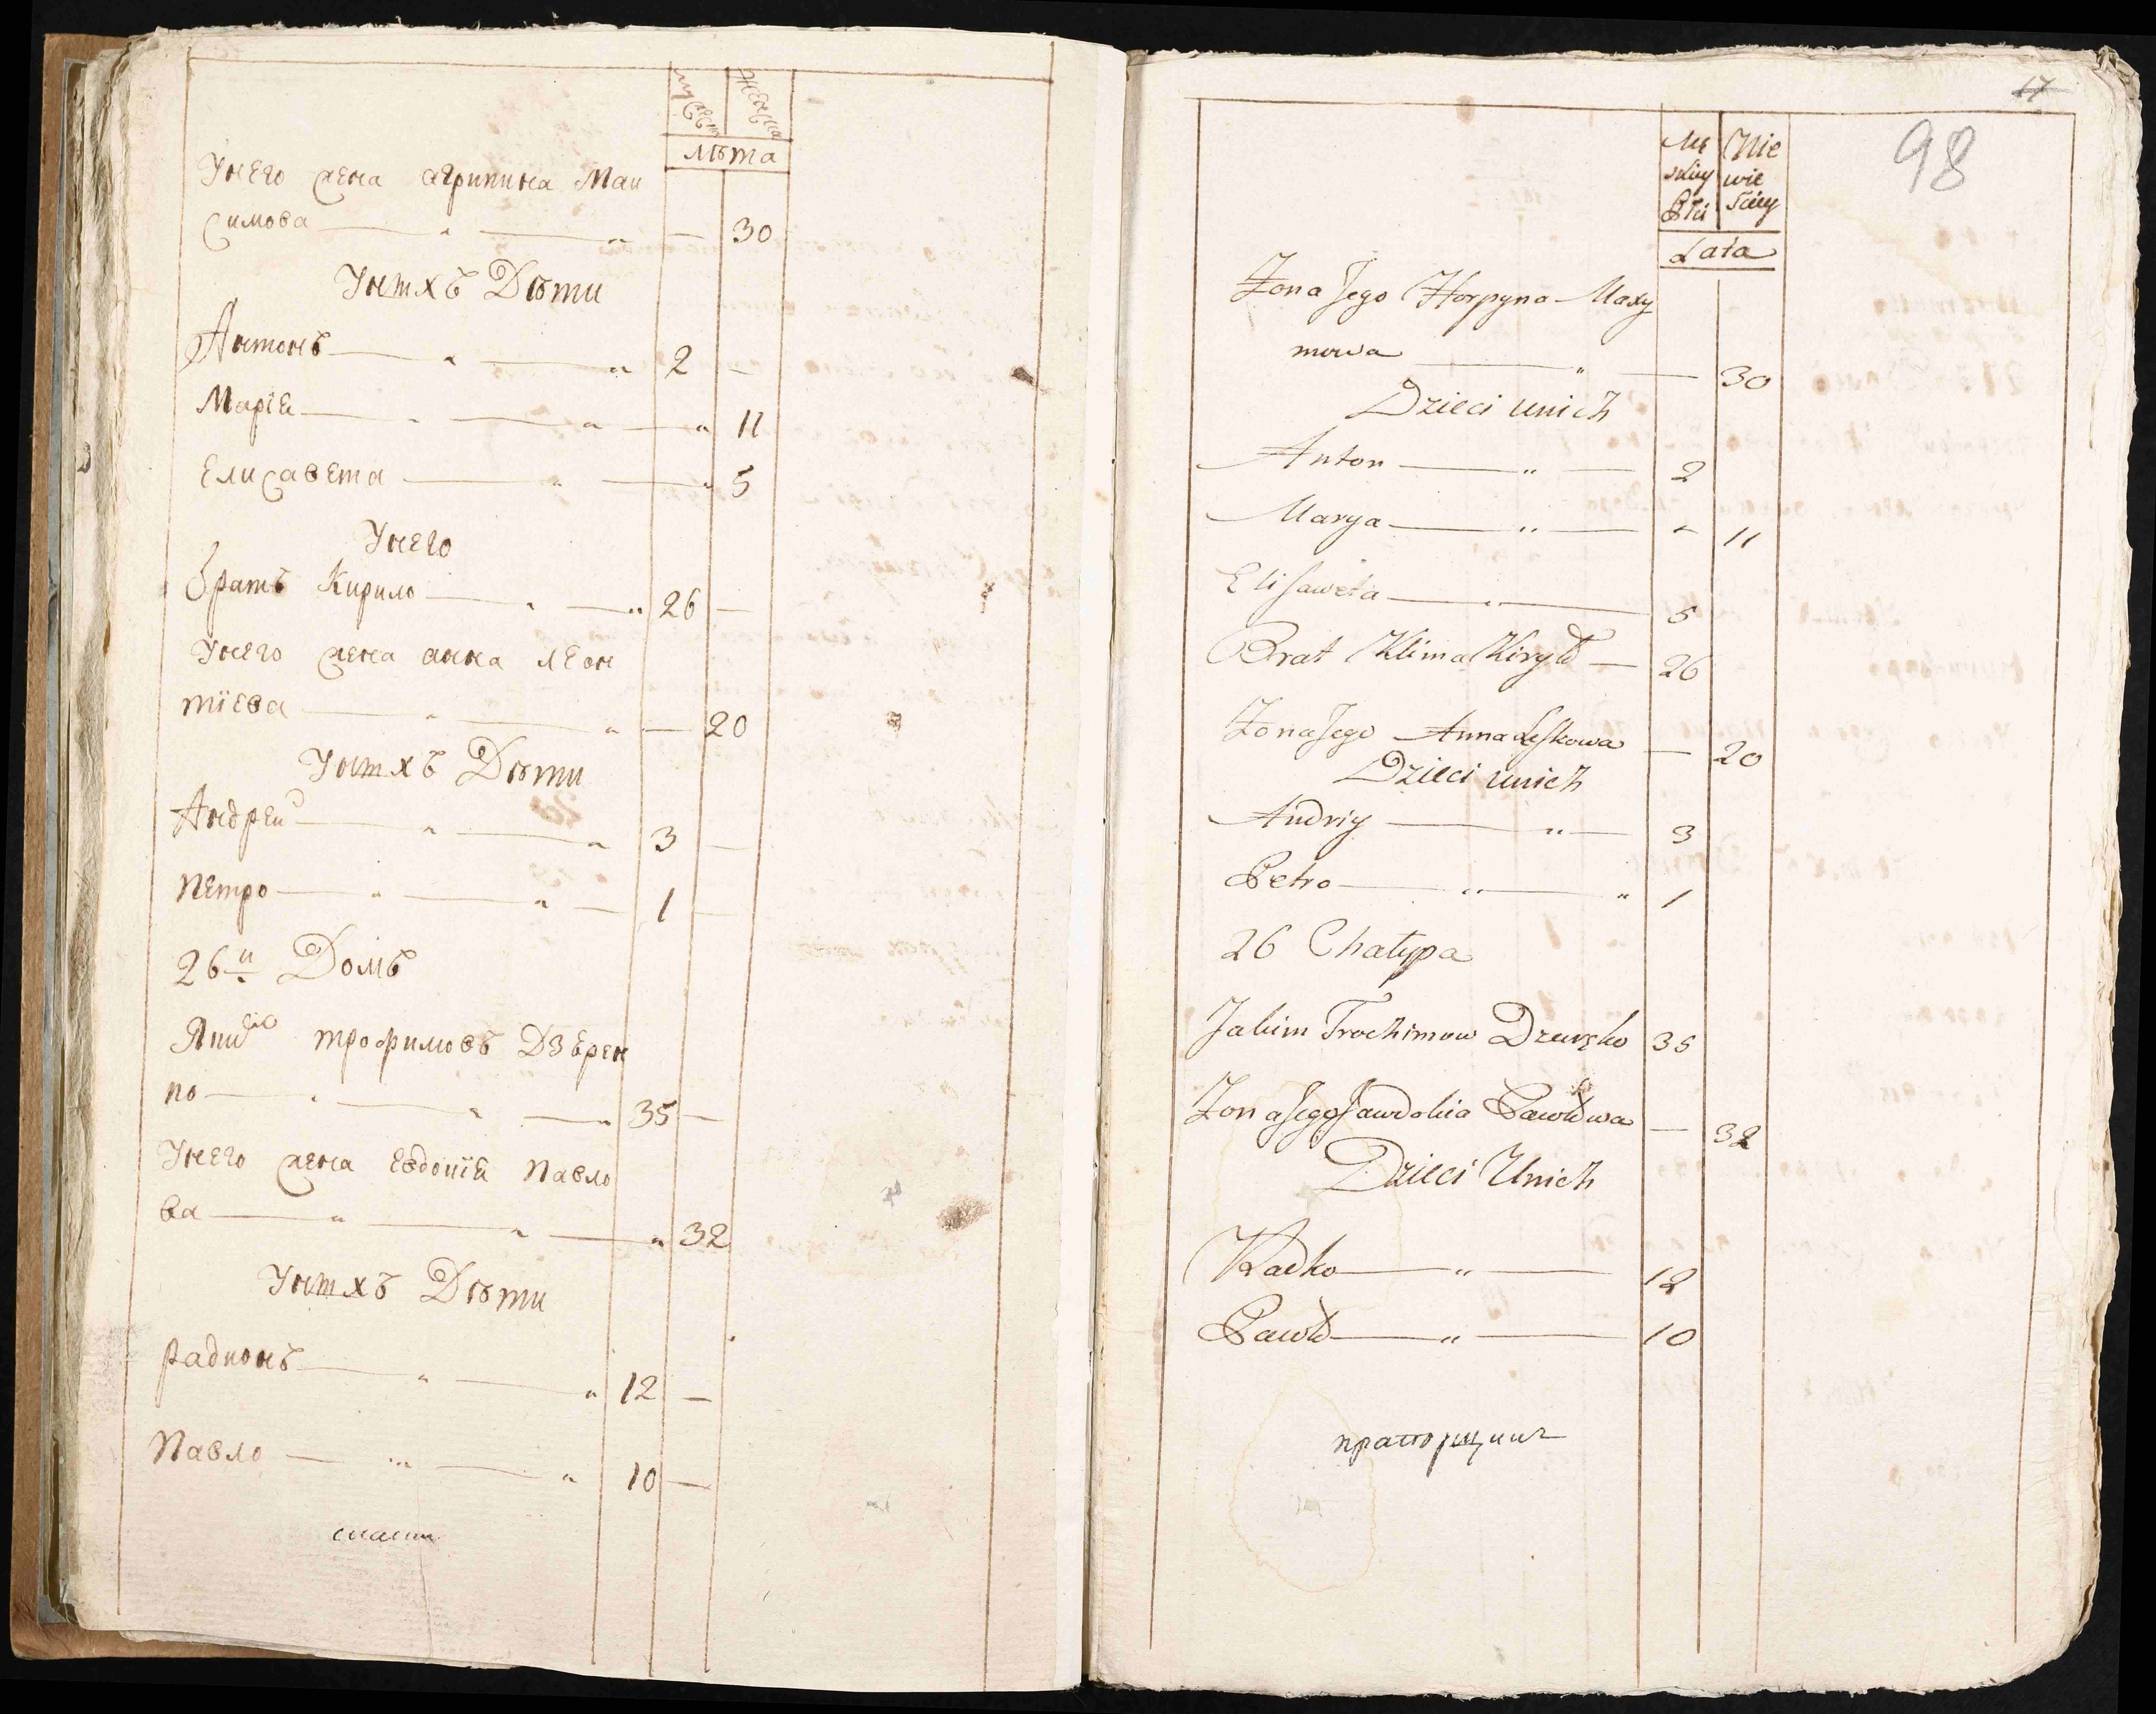 мужеска
женска
лѣта
Унего жена агрипина Мак
симова 30
Унихъ Дѣти
Антонъ 2
Марїѧ 11
Елисавета 5
Унего
братъ Кирило 26
Унего жена анна леон
тїева 20
Унихъ Дѣти
Андрей 3
Петро 1
26й Домъ
трофимовъ Дзѣрен
ко 35
Унего жена Евдокїѧ Павло
ва 32
Унихъ Дѣти
Радионъ 12
Павло 10
17
98
Mę Nie
skiey wie
Płci sciey
Lata
Zona Jego Horpyna Maxy
mowa 30
Dzieci unich
Anton 2
Marya 11
Elisaweta 5
Brat Klima Kiryło 26
Zona Jego Anna Leskowa 20
Dzieci unich
Andriy 3
Petro 1
26 Chatupa
Jakim Trochimow Dzeręko 35
Zona Jego Jawdokia Pawłowa 32
Dzieci Unich
Radko 12
Pawło 10
прапорщикъ